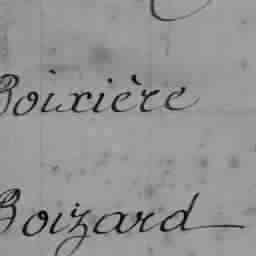 Boixière
Boizard